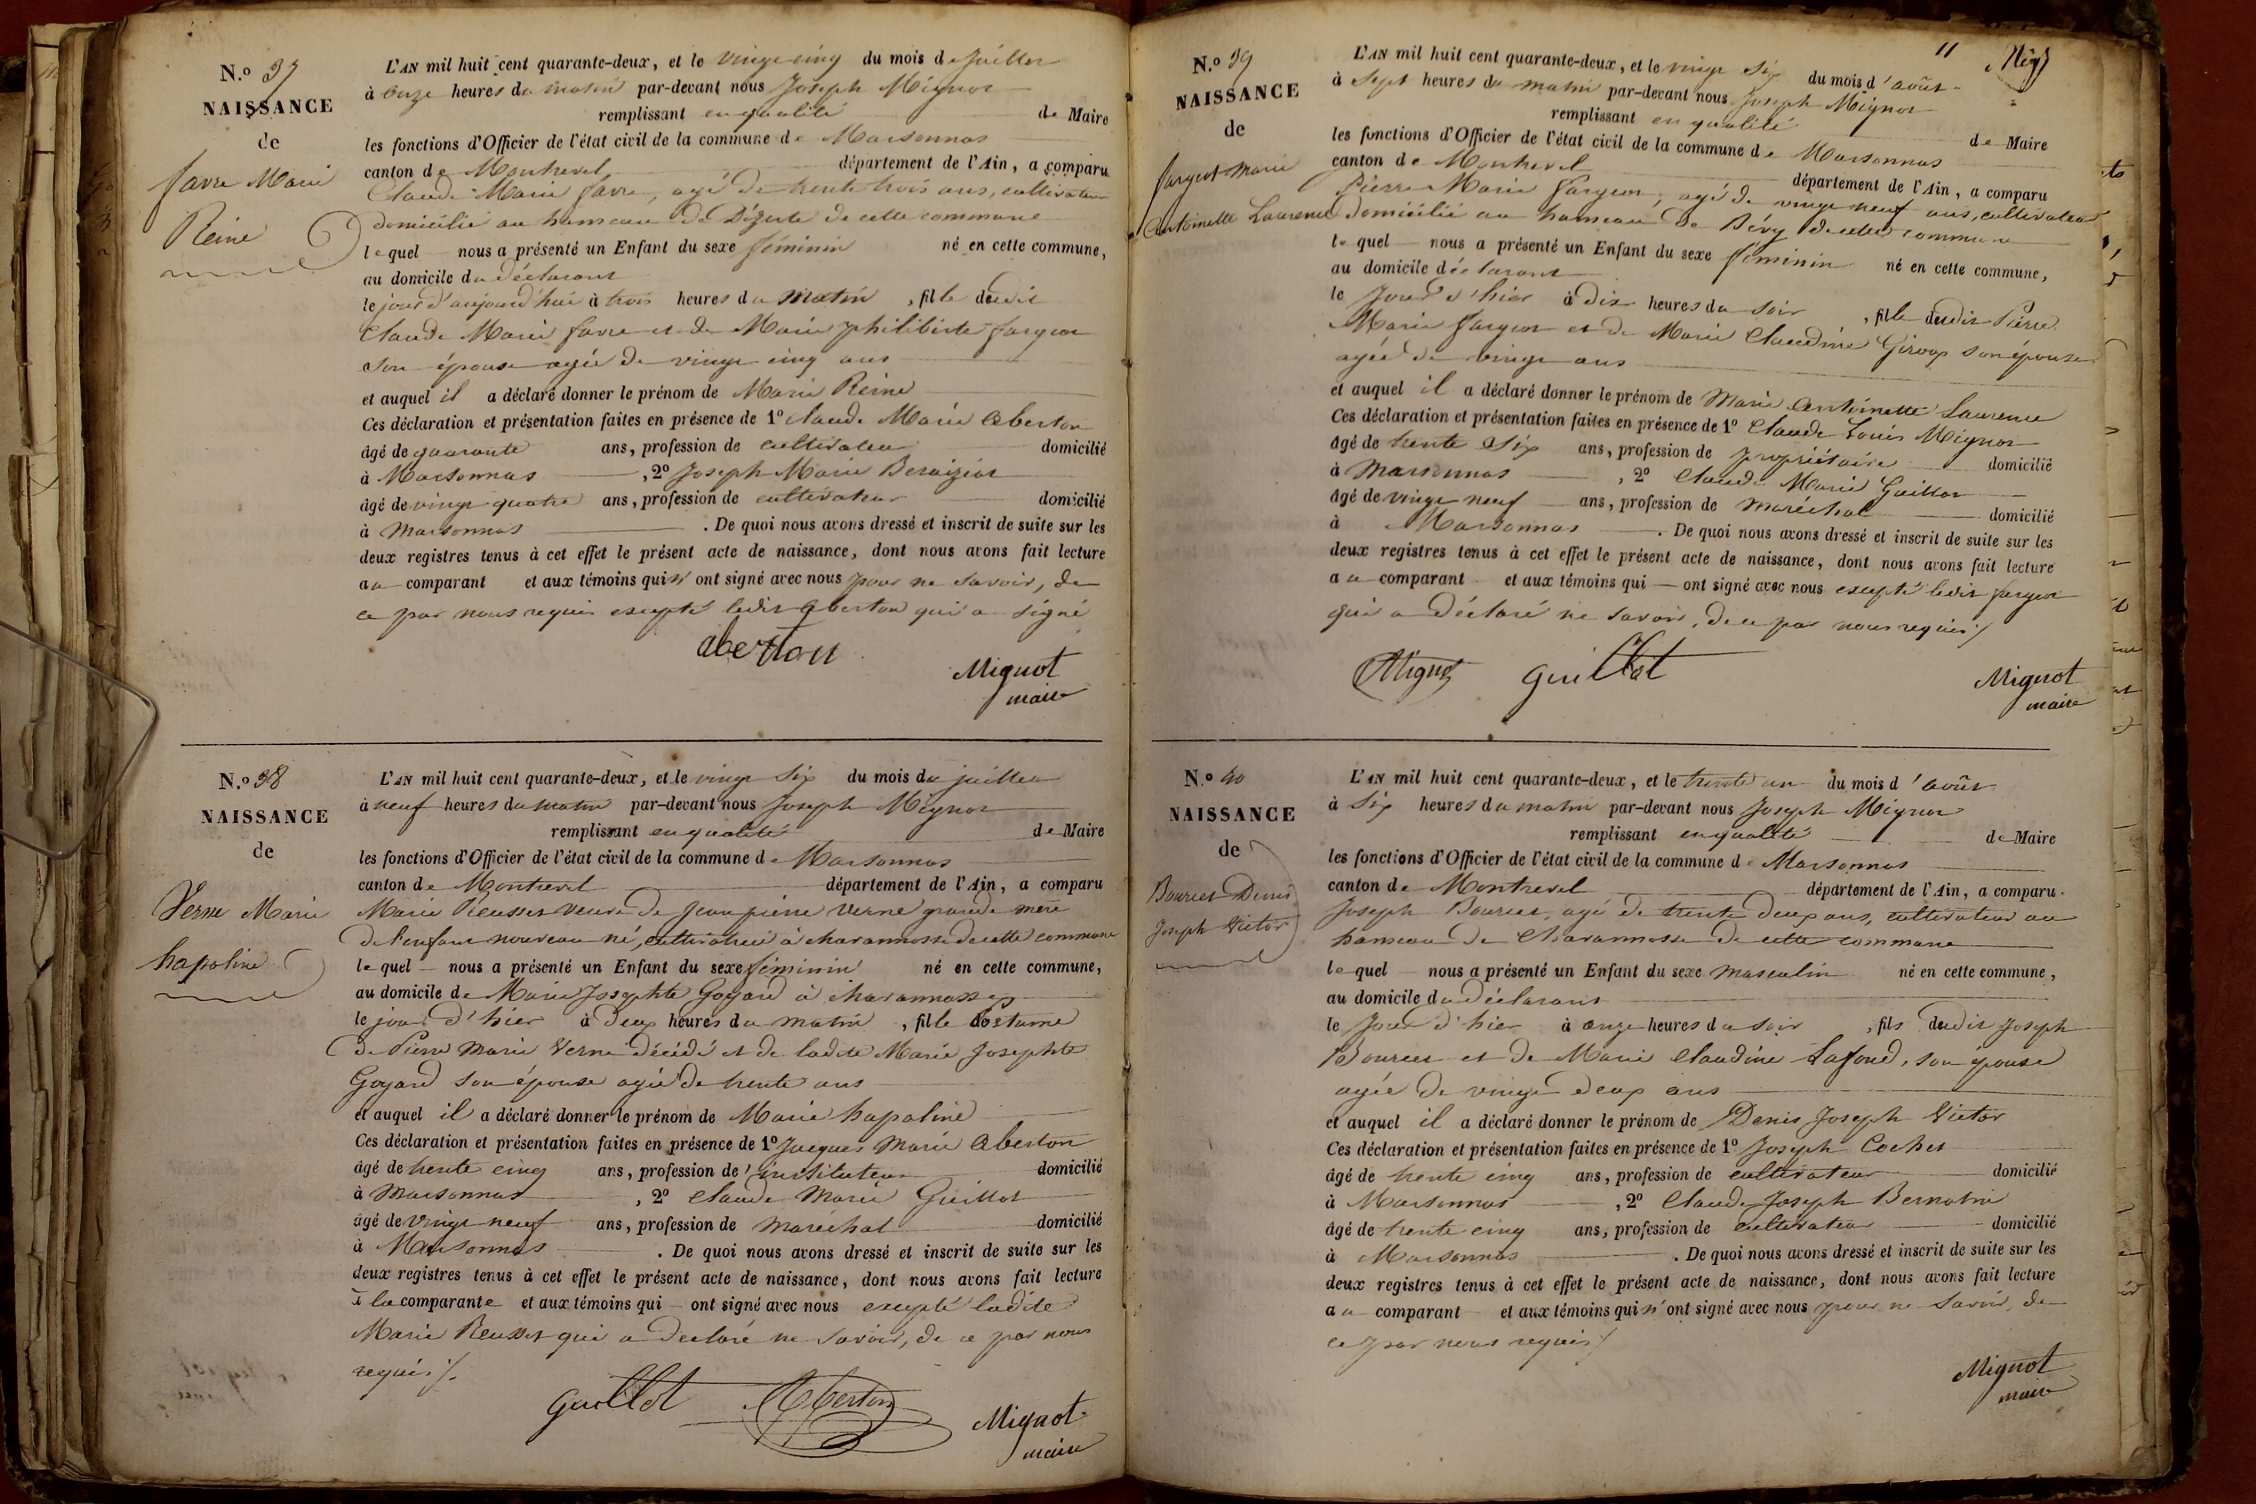 N.o 37
NAISSANCE
de
favre Marie
Reine
L'AN mil huit cent quarante-deux, et le vingt cinq du mois de juillet
à onze heures du matin par-devant nous Joseph Mignot
remplissant en qualité de Maire
les fonctions d'Officier de l'état civil de la commune de Marsonnas
canton de Montrevel département de l'Ain, a comparu
Claude Marie favre, agé de trente trois ans, cultivateur
domicilié au hameau de Dézerte de cette commune
lequel nous a présenté un Enfant du sexe féminin né en cette commune,
au domicile du déclarant
le jour d'aujourd'hui à trois heures du matin, fille dudit
Claude Marie favre et de Marie philiberte fargeot
son épouse agée de vingt cinq ans
et auquel il a déclaré donner le prénom de Marie Reine
Ces déclaration et présentation faites en présence de 1º Claude Marie Aberton
âgé de quarante ans, profession de cultivateur domicilié
à Marsonnas, 2º Joseph Marie
âgé de vingt quatre ans, profession de cultivateur domicilié
à Marsonnas. De quoi nous avons dressé et inscrit de suite sur les
deux registres tenus à cet effet le présent acte de naissance, dont nous avons fait lecture
au comparant et aux témoins qui n'ont signé avec nous pour ne savoir, de
ce par nous requis excepté ledit Aberton qui a signé
aberton
Mignot
maire
N.o 38
NAISSANCE
de
Verne Marie
hapoline
L'AN mil huit cent quarante-deux, et le vingt six du mois du juillet
à neuf heures du matin par-devant nous Joseph Mignot
remplissant en qualité de Maire
les fonctions d'Officier de l'état civil de la commune de Marsonnas
canton de Montrevel département de l'Ain, a comparu
Marie Reusset veuve de Jean pierre Verne grande mère
de l'enfant nouveau né, cultivatrice à charannosse de cette commune
lequel nous a présenté un Enfant du sexe féminin né en cette commune,
au domicile de Marie Josephte Goyard à charannosse
le jour d'hier à deux heures du matin, fille postume
de Pierre Marie Verne décédé et de ladite Marie Josephte
Goyard son épouse agée de trente ans
et auquel il a déclaré donner le prénom de Marie hapoline
Ces déclaration et présentation faites en présence de 1º Jacques Marie Aberton
âgé de trente cinq ans, profession de instituteur domicilié
à Marsonnas, 2º Claude Marie Guillot
âgé de vingt neuf ans, profession de maréchal domicilié
à Marsonnas. De quoi nous avons dressé et inscrit de suite sur les
deux registres tenus à cet effet le présent acte de naissance, dont nous avons fait lecture
à la comparante et aux témoins qui ont signé avec nous excepté ladite
Marie Reusset qui a déclaré ne savoir, de ce par nous
requis ./.
Guillot Aberton
Mignot
maire
11 Mignot
N.o 39
NAISSANCE
de
fargeot Marie
Antoinette Laurence
L'AN mil huit cent quarante-deux, et le vingt six du mois d'août
à sept heures du matin par-devant nous Joseph Mignot
remplissant en qualité de Maire
les fonctions d'Officier de l'état civil de la commune de Marsonnas
canton de Montrevel département de l'Ain, a comparu
Pierre Marie fargeot, agé de vingt neuf ans, cultivateur
domicilié au hameau de Bévy de cette commune
lequel nous a présenté un Enfant du sexe féminin né en cette commune,
au domicile déclarant
le Jour d'hier à dix heures du soir, fille dudit Pierre
Marie fargeot et de Marie Claudine Giroux son épouse
agée de vingt ans
et auquel il a déclaré donner le prénom de Marie Antoinette Laurence
Ces déclaration et présentation faites en présence de 1º Claude Louis Mignot
âgé de trente six ans, profession de propriétaire domicilié
à Marsonnas, 2º Claude Marie Guillot
âgé de vingt neuf ans, profession de maréchal domicilié
à Marsonnas. De quoi nous avons dressé et inscrit de suite sur les
deux registres tenus à cet effet le présent acte de naissance, dont nous avons fait lecture
au comparant et aux témoins qui ont signé avec nous excepté ledit fargeot
qui a déclaré ne savoir, de ce par nous requis ./
Mignot Guillot
Mignot
maire
N.o 40
NAISSANCE
de
Bourcet Denis
Joseph Victor
L'AN mil huit cent quarante-deux, et le trente un du mois d'août
à six heures du matin par-devant nous Joseph Mignot
remplissant en qualité de Maire
les fonctions d'Officier de l'état civil de la commune de Marsonnas
canton de Montrevel département de l'Ain, a comparu.
Joseph Bourcet, agé de trente deux ans, cultivateur au
hameau de Charannosse de cette commune
lequel nous a présenté un Enfant du sexe masculin né en cette commune,
au domicile du déclarant
le Jour d'hier à onze heures du soir, fils dudit Joseph
Bourcet et de Marie Claudine Lafond, son épouse
agée de vingt deux ans
et auquel il a déclaré donner le prénom de Denis Joseph Victor
Ces déclaration et présentation faites en présence de 1º Joseph Cochet
âgé de trente cinq ans, profession de cultivateur domicilié
à Marsonnas, 2º Claude Joseph Bernatin
âgé de trente cinq ans, profession de cultivateur domicilié
à Marsonnas. De quoi nous avons dressé et inscrit de suite sur les
deux registres tenus à cet effet le présent acte de naissance, dont nous avons fait lecture
au comparant et aux témoins qui n'ont signé avec nous pour ne savoir, de
ce par nous requis ./
Mignot
maire